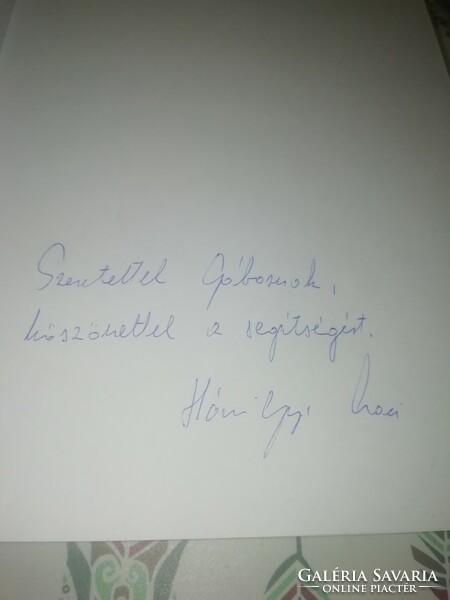 Szeretettel Gábosnak,
köszönettel a segítségért.
GALÉRIA SAVARIA
ONLINE PIACTÉR